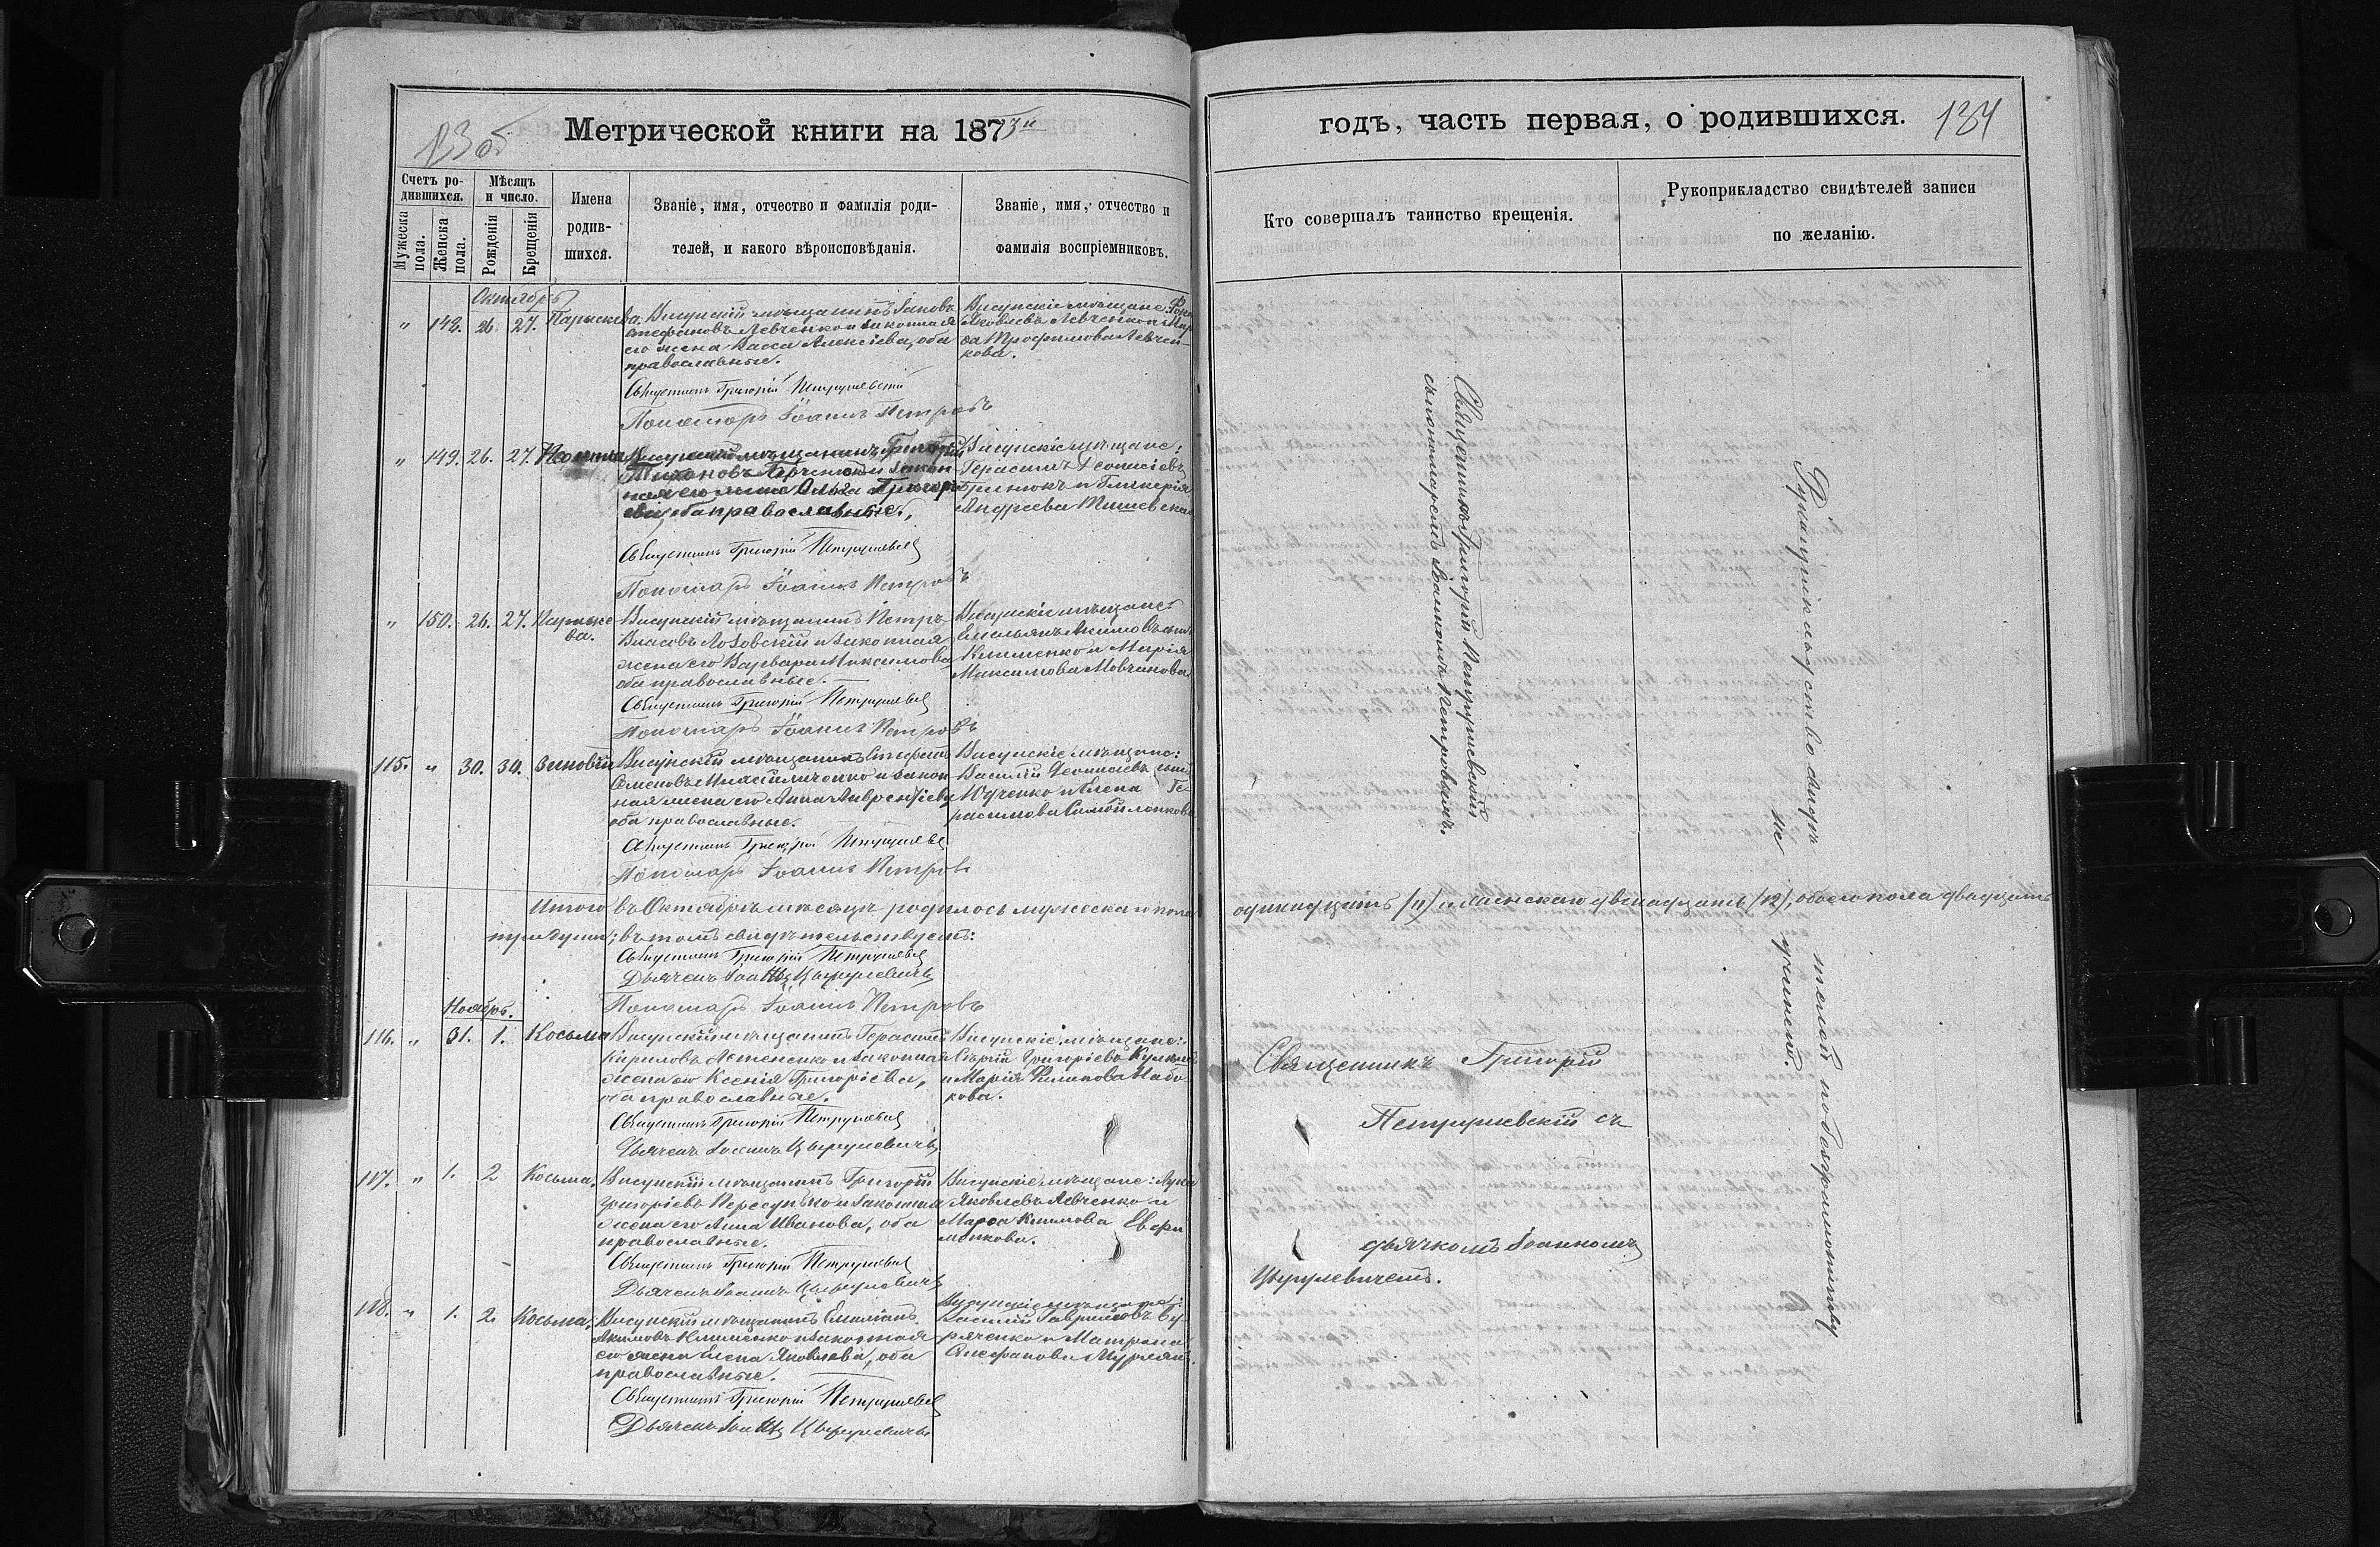 Метрической книги на 1873й
Счетъ ро-
дившихся.
Мужеска
пола.
Женска
пола.
Мѣсяцъ
и число.
Рожденія
Крещенія
Имена
родив-
шихся.
Званіе, имя, отчество и фамилія роди-
телей, и какого вѣроисповѣданія.
Званіе, имя, отчество и
фамилія воспріемниковъ.
Октябрь
" 148. 26. 27. Параскева.
Висунскій мѣщанинъ Іаковъ
Стефановъ Левченко и законная
его жена Васса Алексіева, оба
православные.
Висунскіе мѣщане:
Яковлевъ Левченко и
Трофимова Левчен-
кова.
Священникъ Григорій Петрушевскій
Пономарь Іоаннъ Петровъ
" 149. 26. 27.
Висунскій мѣщанинъ Григорій
и закон-
ная его жена Ольга Григорі-
ева, оба православные.
Висунскіе мѣщане:
Герасимъ Деонисіевъ
Гринюкъ и Гликерія
Андреева
Священникъ Григорій Петрушевскій
Пономарь Іоаннъ Петровъ
" 150. 26. 27. Параске
ва.
Висунскій мѣщанинъ Петръ
Власовъ Лозовскій и законная
жена его Варвара Максимова,
оба православные.
Висунскіе мѣщане:
Емельянъ Акимовъ сынъ
Клименко и Марія
Максимова Мовчанова
Священникъ Григорій Петрушевскій
Пономарь Іоаннъ Петровъ
115. " 30. 30. Зиновій
Висунскій мѣщанинъ
Семеновъ и закон-
ная жена его Анна Лаврентіева
оба православные.
Висунскіе мѣщане:
Василій Деонисіевъ сынъ
и Елена Ге-
расимова
Священникъ Григорій Петрушевскій
Пономарь Іоаннъ Петровъ
Итого въ Октябрѣ мѣсяцѣ родилось мужескаго пола
три души; въ томъ свидѣтельствуемъ:
Священникъ Григорій Петрушевскій
Дьячекъ Іоаннъ Цыруlевичъ
Пономарь Іоаннъ Петровъ
Ноябрь.
116. " 31. 1. Косьма
Висунскій мѣщанинъ Герасимъ
Кириловъ и законная
жена его Ксенія Григоріева,
оба православные.
Висунскіе мѣщане:
Сергій Григоріевъ
и Марія Филипова Набо-
кова.
Священникъ Григорій Петрушевскій
Дьячекъ Іоаннъ Цырулевичъ
117. " 1. 2 Косьма.
Висунскій мѣщанинъ Григорій
Григоріевъ Пересунько и законная
жена его Анна Иванова, оба
православные.
Висунскіе мѣщане: Лука
Яковлевъ Левченко и
Марѳа Климова
Священникъ Григорій Петрушевскій
Дьячекъ Іоаннъ Цырулевичъ
118. " 1. 2. Косьма.
Висунскій мѣщанинъ Емиліанъ
Акимовъ Клименко и законная
его жена Елена Яковлева, оба
православные.
Висунскіе мѣщане:
Василій Гавриловъ
и Матрона
Стефанова
Священникъ Григорій Петрушевскій
Дьячекъ Іоаннъ Цырулевичъ
годъ, часть первая, о родившихся.
134
Кто совершалъ таинство крещенія.
Рукоприкладство свидѣтелей записи
по желанію.
Священникъ Григорій Петрушевскій
съ пономаремъ Іоанномъ Петровымъ.
Рукоприкладство свидѣ
телей по безграмотству
не учинено.
одинадцать (11) и женскаго двенадцать (12), обоего пола двадцать
Священникъ Григорій
Петрушевскій съ
дьячкомъ Іоанномъ
Цырулевичемъ.